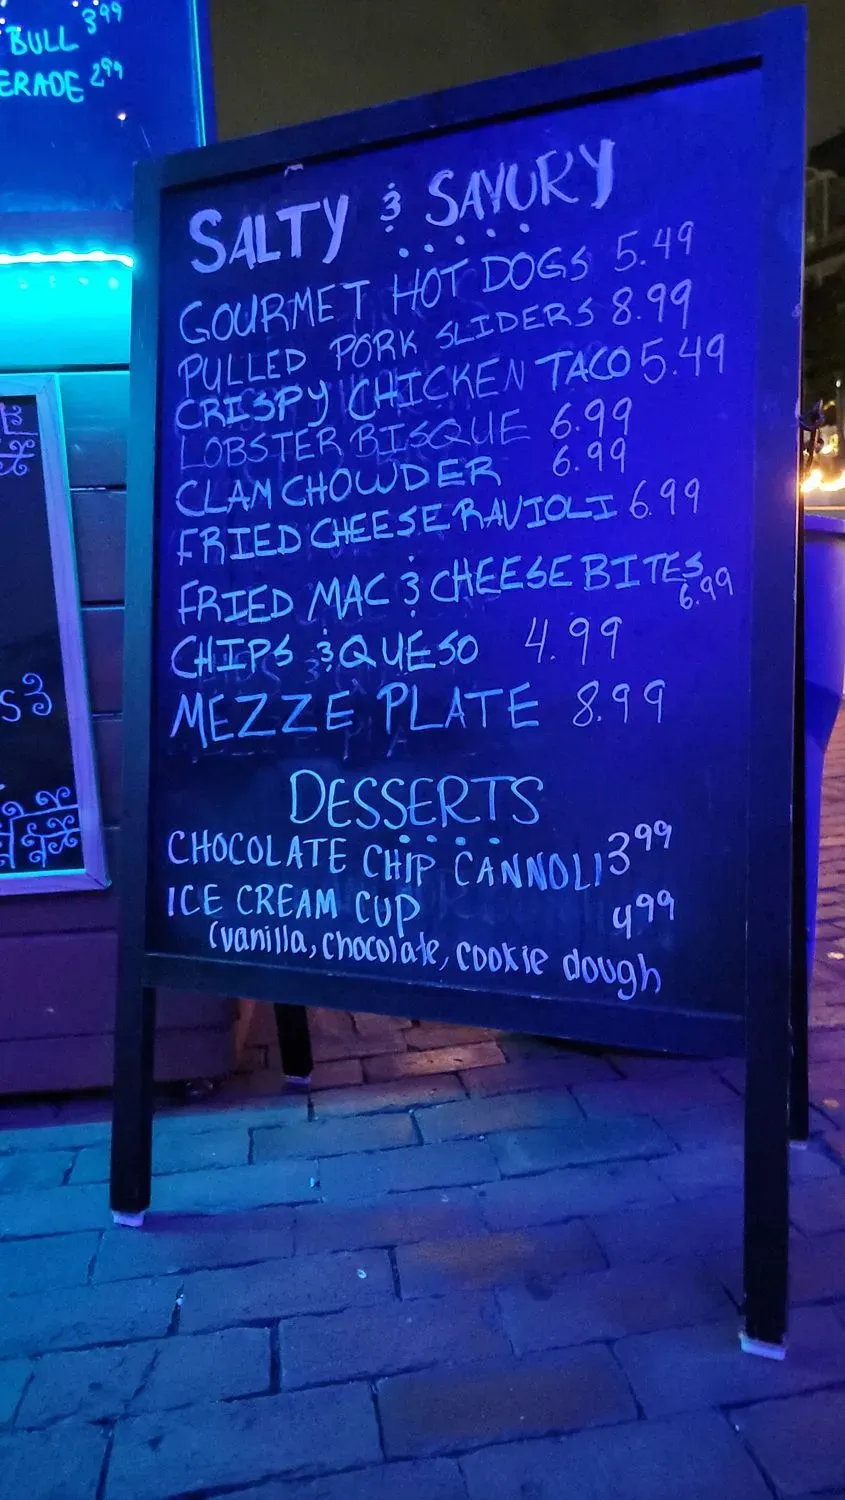 BULL 3.99
ERADE 2.99
SALTY & SAVURY
GOURMET HOT DOGS 5.49
PULLED PORK SLIDERS 8.99
CRISPY CHICKEN TACO 5.49
LOBSTER BISQUE 6.99
CLAM CHOWDER 6.99
FRIED CHEESE RAVIOLI 6.99
FRIED MAC & CHEESE BITES
6.99
CHIPS & QUESO 4.99
MEZZE PLATE 8.99
DESSERTS
CHOCOLATE CHIP CANNOLI 3 99
ICE CREAM CUP 4 99
(vanilla, chocolate, cookie dough